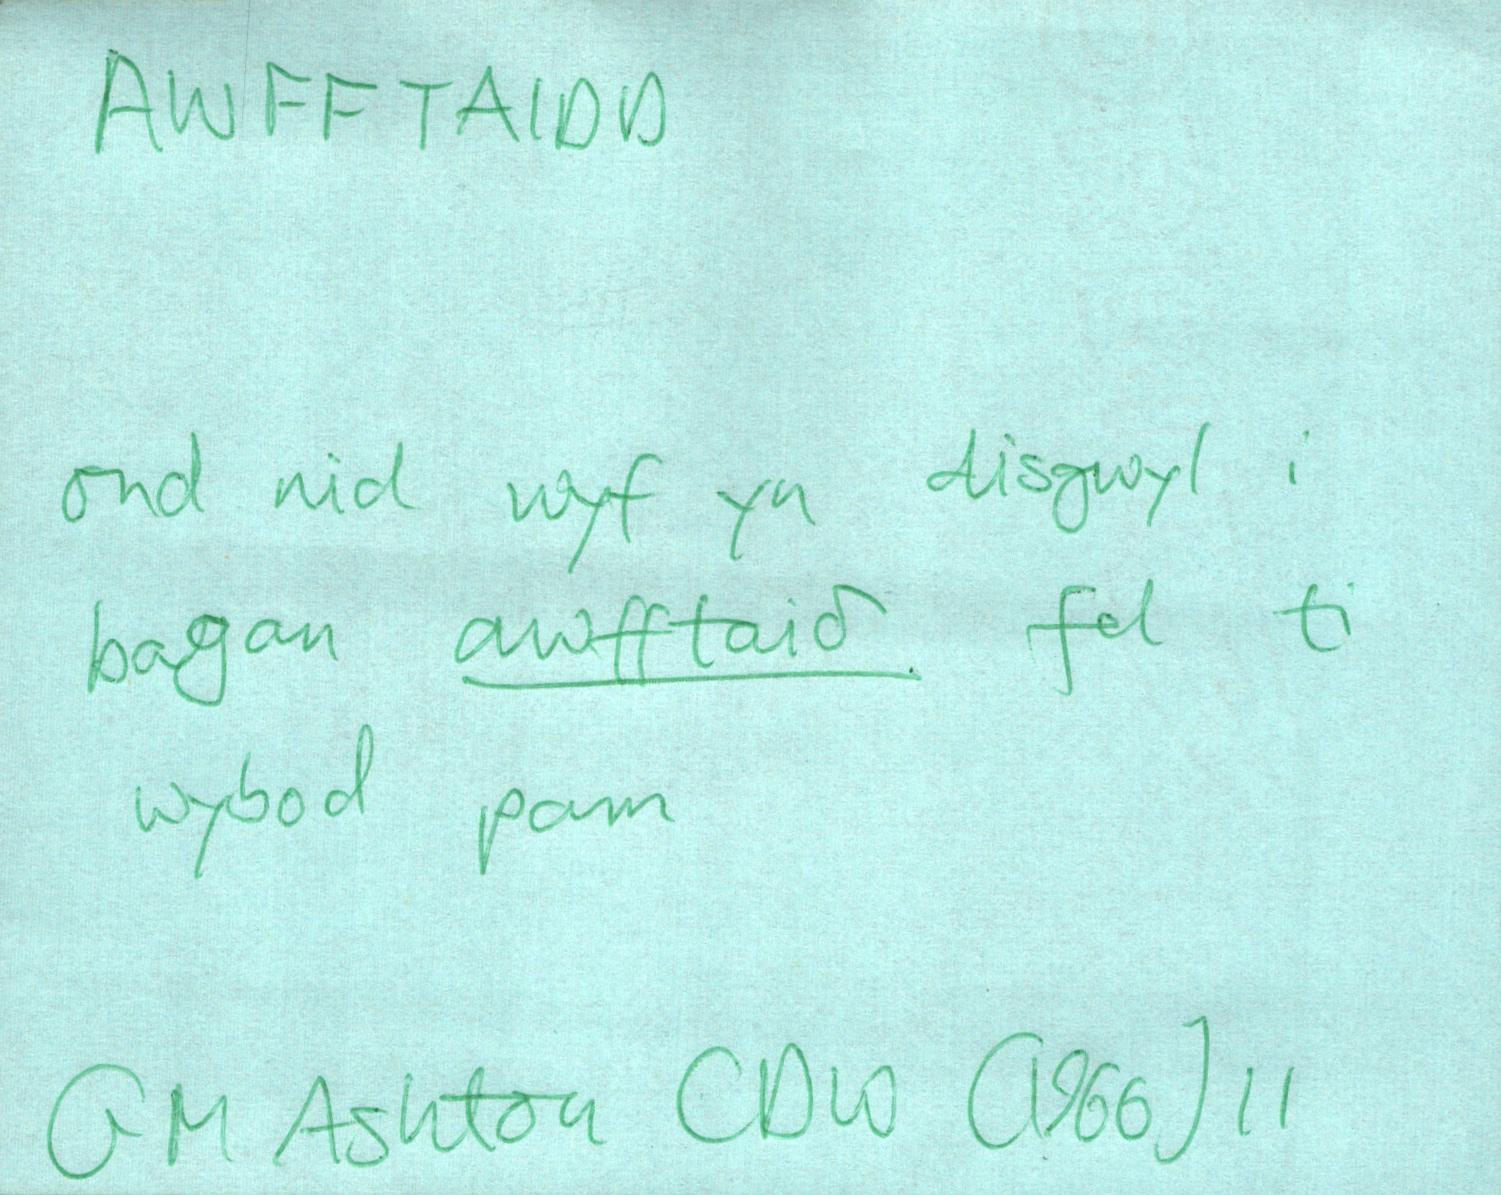 AWFFTAIDD
ond nid wyf yn disgwyl i
bagan awfftaið fel ti
wybod pam
GM Ashton CDW (1966) 11